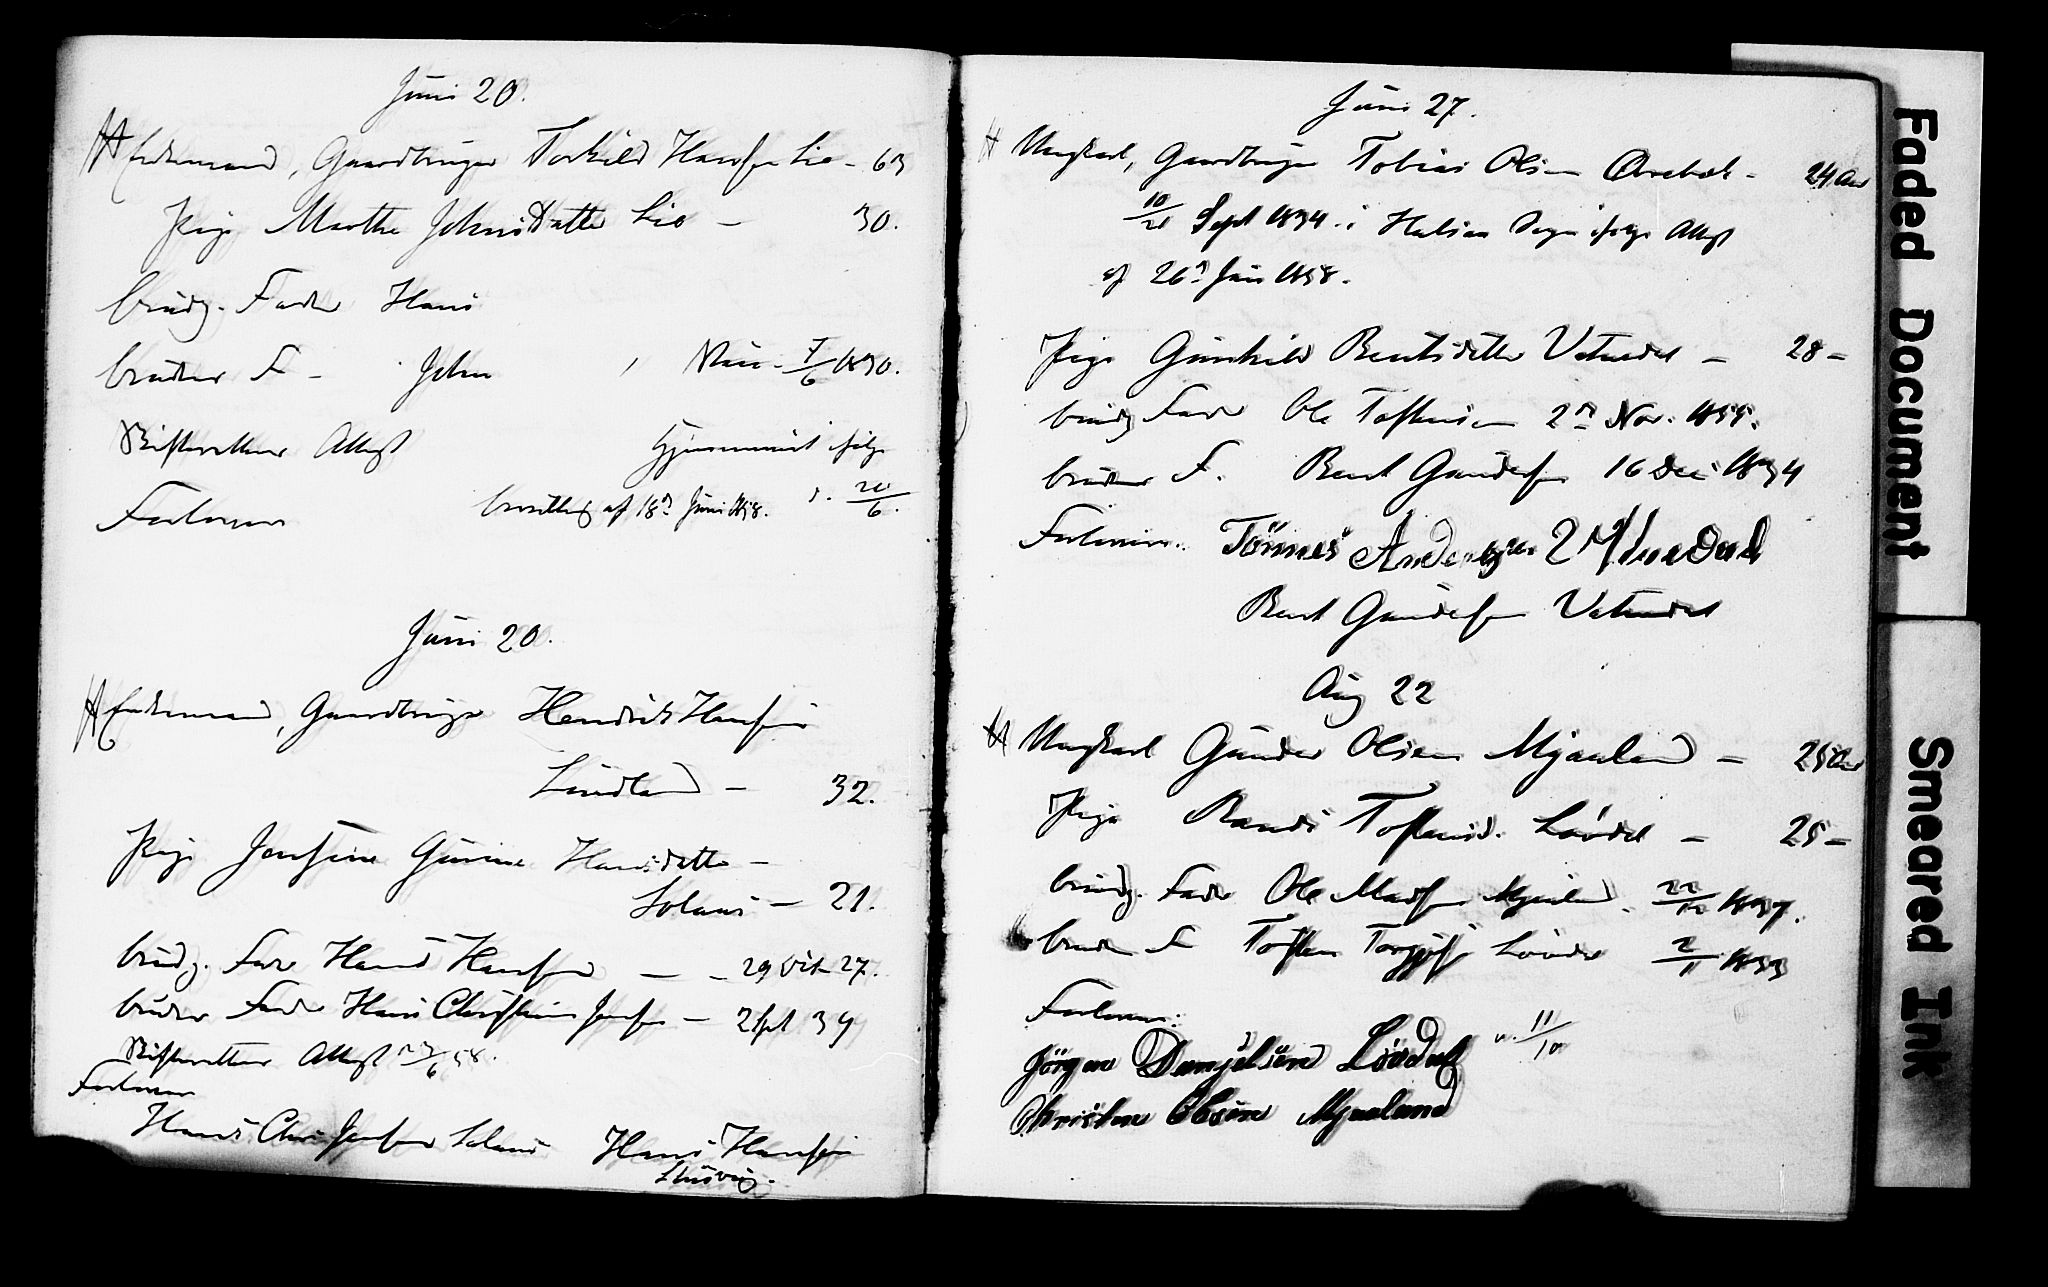 Juni 20.
Enkemand, Gaardbruger Torkild Hansen Lie - 63
Pige Marthe Johnsdatter Lie - 30.
brudg. Fader Hans
brudens F - John , Vac. 7/6 1830.
Skifterettens Attest Hjemmeviet ifølge
Forlovere bevilling af 18de Juni 1858. d. 20/6.
Juni 20.
Enkemand, Gaardbruger Hendrik Hansen
Lindland - 32.
Pige Josefine Gurine Hansdatter -
Solaas - 21.
brudg. Fader Hans Hansen - - 29 Oct 27.
brudens Fader Hans Christian Jensen - 2 Spt 39
Skifterettens Attest 58.
Forlovere
Hans Chr. Jensen Solaas Hans Hansen
Juni 27.
Ungkarl, Gaardbruger Tobias Olsen Øvrebøk - 24 Aar
Sept 1834 i Halsaa Sogn ifølge Attest
af 26de Juni 1858.
Pige Gunhild Bentsdatter Vatnedal - 28 -
brudg Fader Ole Tostensen 2de Nov. 1855.
brudens F. Bent Gundersen 16 Dec 1834
Forlovere: Tönnes Andersen
Bent Gundersen Vatnedal
Aug 22
Ungkarl Gunder Olsen Mjaaland - 25 Aar
Pige Randi Tostensd. Løvdal - 25 -
brudg. Fader Ole Madsen Mjaaland. 1837.
brudens F Tosten Torgjus. Løvdal 2/11 1833
Forlovere: 11/10
Jörgen Danjelsen Løvdal
Christen Olsen Mjaaland
Faded Document
Smeared Ink